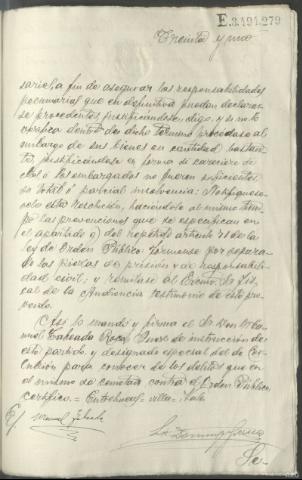 E.3.491.279
Treinta y uno
sario, a fin de asegurar las responsabilidades
pecuniarias que en definitiva puedan declarar
se procedentes justificandose digo, y si no lo
verifica dentro de dicho termino procedase al
embargo de sus bienes en cantidad bastan
te, justificandose en forma si careciere de
ellos o los embargados no fueren suficientes
su total o parcial insolvencia: Notifiquese
sele esta resolucion, haciendole al mismo tiem
po las prevenciones que se especifican en
el apartado del repetido articulo de la
ley de Orden Público: Formense por separa
do las piezas de prision y de responsabili
dad civil, y remitase al Excmo. Sr. Fis
cal de la Audiencia testimonio de este pro
veido.
Asi lo mandó y firma el Sr. Don Ma
nuel Taboada Roca, Juez de instruccion de
este partido y designado especial del de
para conocer de los delitos que en
el mismo se cometan contra el Orden Público,
certifico. = Entrelineas = villa = Vale
E/ Manuel Taboada
Se-